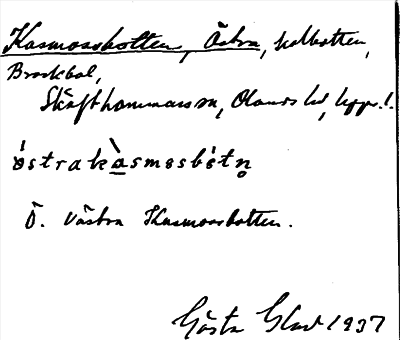 Kasmossbotten, Östra, kolbotten,
Brockbol,
Skäfthammars sn, Olands hd, Upps. l.
östrakàsmosbótn̥
Ö. Västra Kasmossbotten.
Gösta Glad 1937